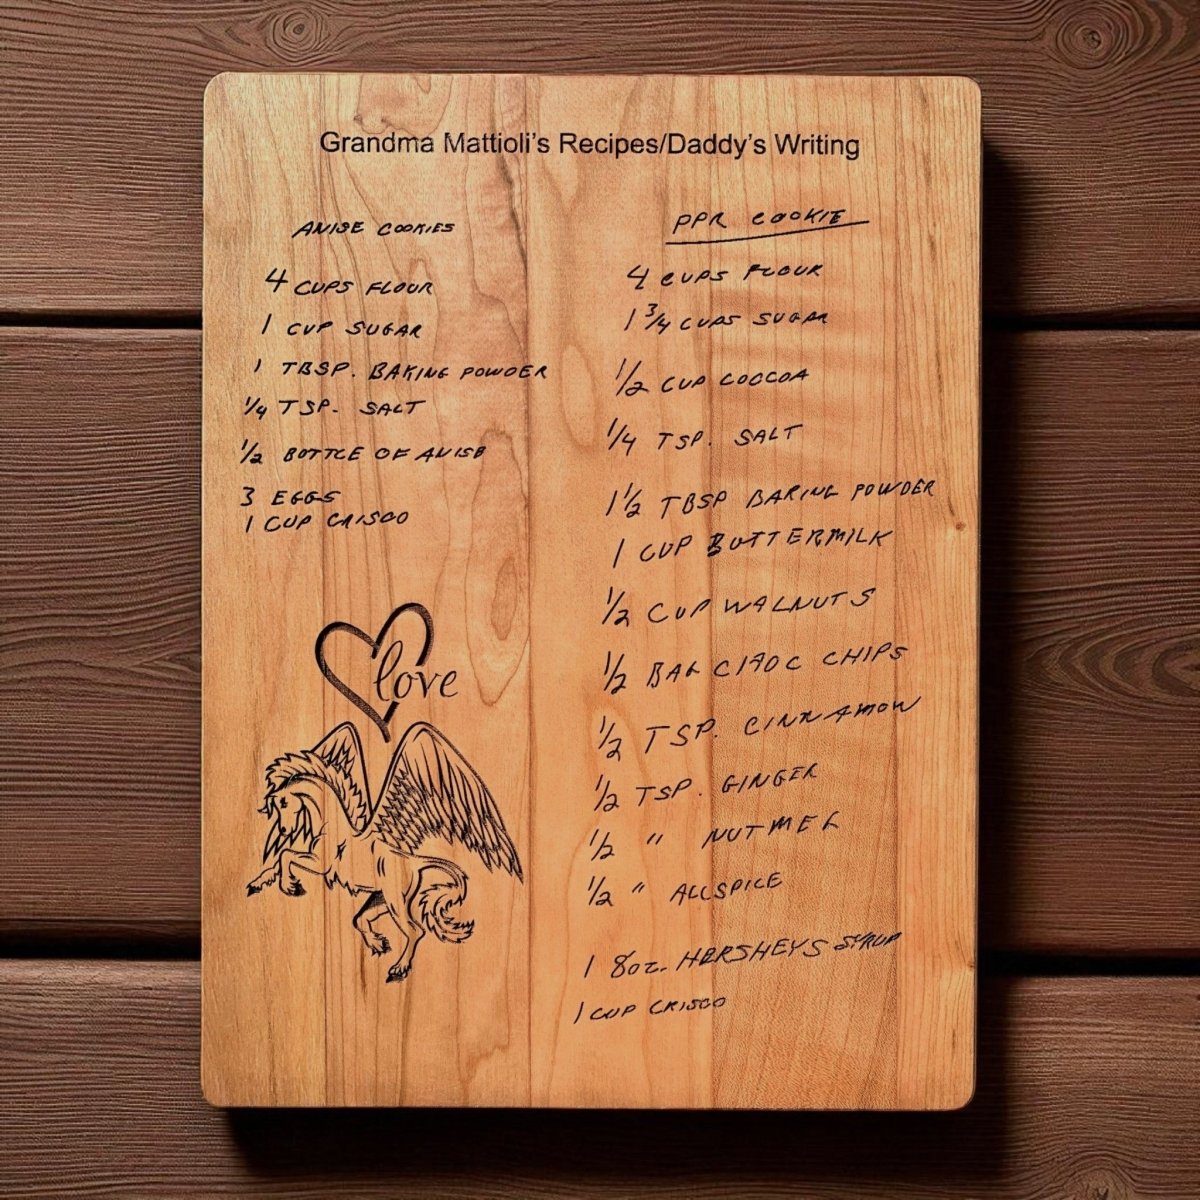 Grandma Mattioli's Recipes/Daddy's Writing
ANISE COOKIES
4 CUPS FLOUR
1 CUP SUGAR
1 TBSP. BAKING POWDER
1/4 TSP. SALT
1/2 BOTTLE OF ANISE
3 EGGS
1 CUP CRISCO
love
PPR COOKIE
4 CUPS FLOUR
1 3/4 CUPS SUGAR
1/2 CUP COOCOA
1/4 TSP. SALT
1 1/2 TBSP BAKING POWDER
1 CUP BUTTERMILK
1/2 CUP WALNUTS
1/2 BAG CHOC CHIPS
1/2 TSP. CINNAMON
1/2 TSP. GINGER
1/2 " NUTMEG
1/2 " ALLSPICE
1 8oz. HERSHEYS SYRUP
1 CUP CRISCO